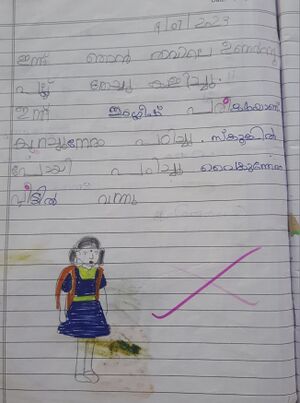 9/01/2023
ഇന്ന് ഞാൻ രാവിലെ ഉണർന്നു
പല്ല് തേച്ചു കുളിച്ചു.
ഇന്ന് ഇംഗ്ലീഷ് പരീക്ഷയാണ്
കുറച്ചുനേരം പഠിച്ചു. സ്കൂളിൽ
പോയി പഠിച്ചു വൈകുന്നേരം
വീട്ടിൽ വന്നു